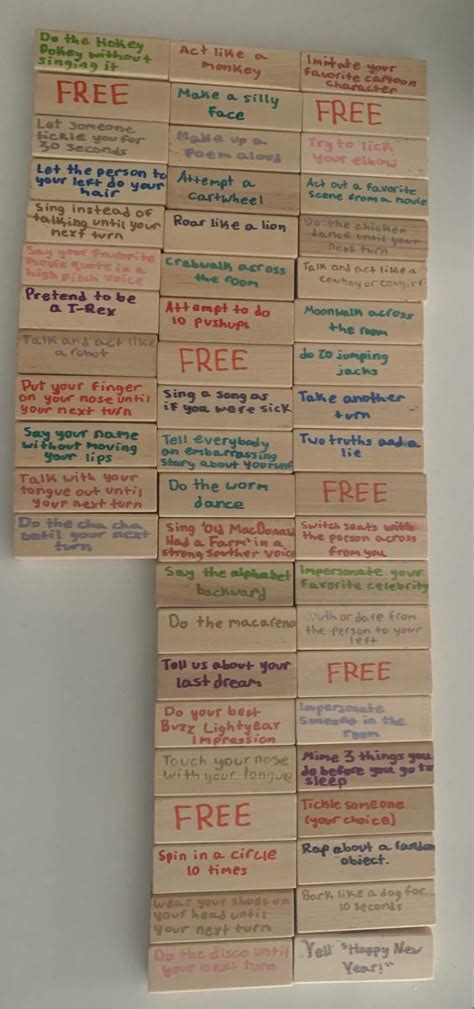 Do the Hokey
Pokey without
singing it
FREE
Let someone
tickle you for
30 seconds
Let the person to
your left do your
hair
Sing instead of
talking until your
next turn
Say your favorite
movie quote in a
high pitch voice
Pretend to be
a T-Rex
Talk and act like
a robot
Put your finger
on your nose until
your next turn
Say your name
without moving
your lips
Talk with your
tongue out until
your next turn
Do the cha cha
until your next
turn
Act like a
monkey
Make a silly
face
Make up a
poem aloud
Attempt a
cartwheel
Roar like a lion
Crabwalk across
the room
Attempt to do
10 pushups
FREE
Sing a song as
if you were sick
Tell everybody
an embarrassing
story about yourself
Do the worm
dance
Sing "Old MacDonald
Had a Farm" in a
strong souther voice
Say the alphabet
backward
Do the macarena
Tell us about your
last dream
Do your best
Buzz Lightyear
Impression
Touch your nose
with your tongue
FREE
Spin in a circle
10 times
Wear your shoes on
your head until
your next turn
Do the disco until
your next turn
Imitate your
favorite cartoon
character
FREE
Try to lick
your elbow
Act out a favorite
scene from a movie
Do the chicken
dance until your
next turn
Talk and act like a
cowboy or cowgirl
Moonwalk across
the room
do 20 jumping
jacks
Take another
turn
Two truths and a
lie
FREE
Switch seats with
the person across
from you
Impersonate your
favorite celebrity
Truth or dare from
the person to your
left
FREE
Impersonate
someone in the
room
Mime 3 things you
do before you go to
sleep
Tickle someone
(your choice)
Rap about a random
object.
Bark like a dog for
10 seconds
Yell "Happy New
Year!"